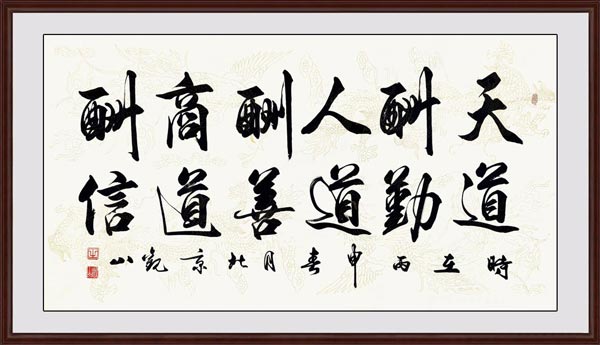 天道
酬勤
人道
酬善
商道
酬信
時在丙申春月北京山